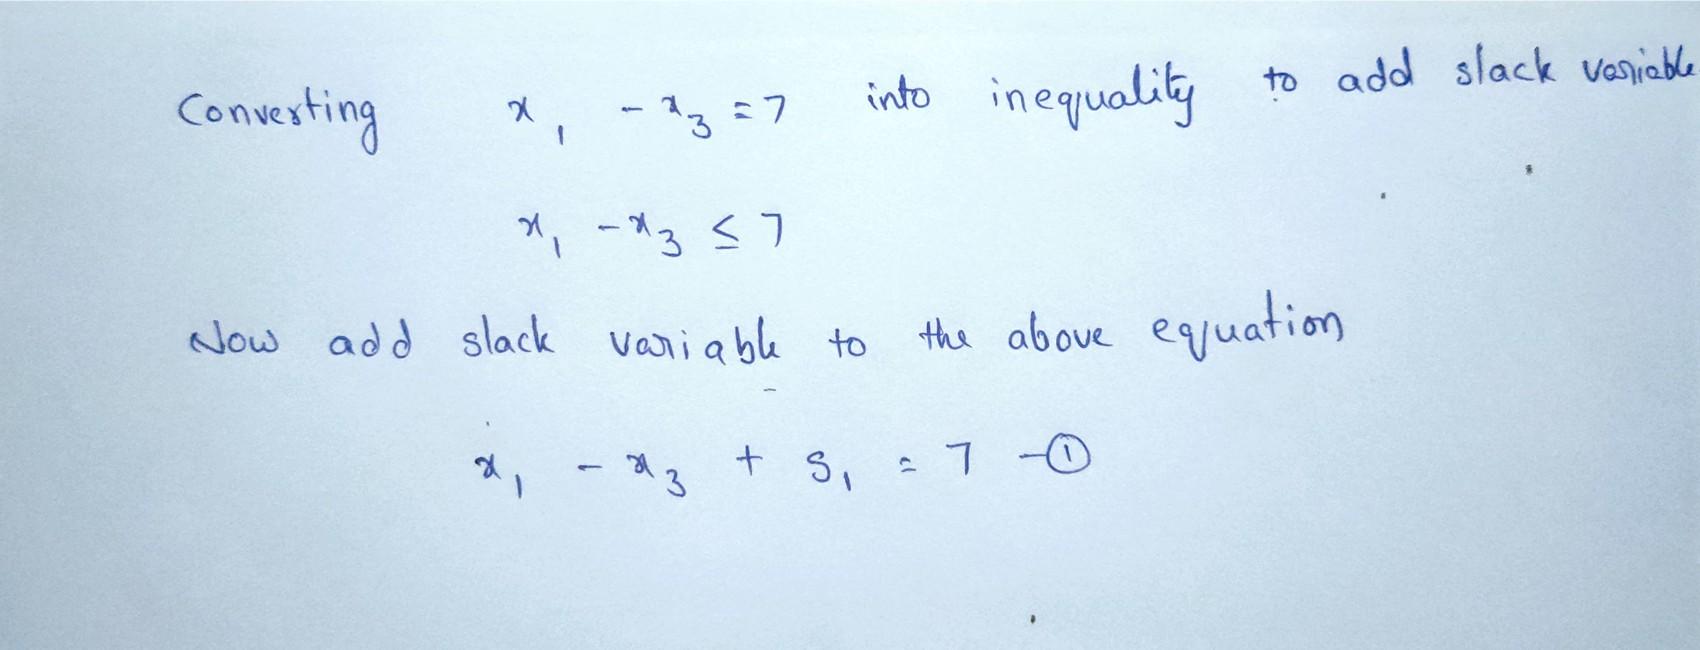 Converting x₁ - x₃ = 7 into inequality to add slack variable
x₁ - x₃ ≤ 7
Now add slack variable to the above equation
x₁ - x₃ + S₁ = 7 -①